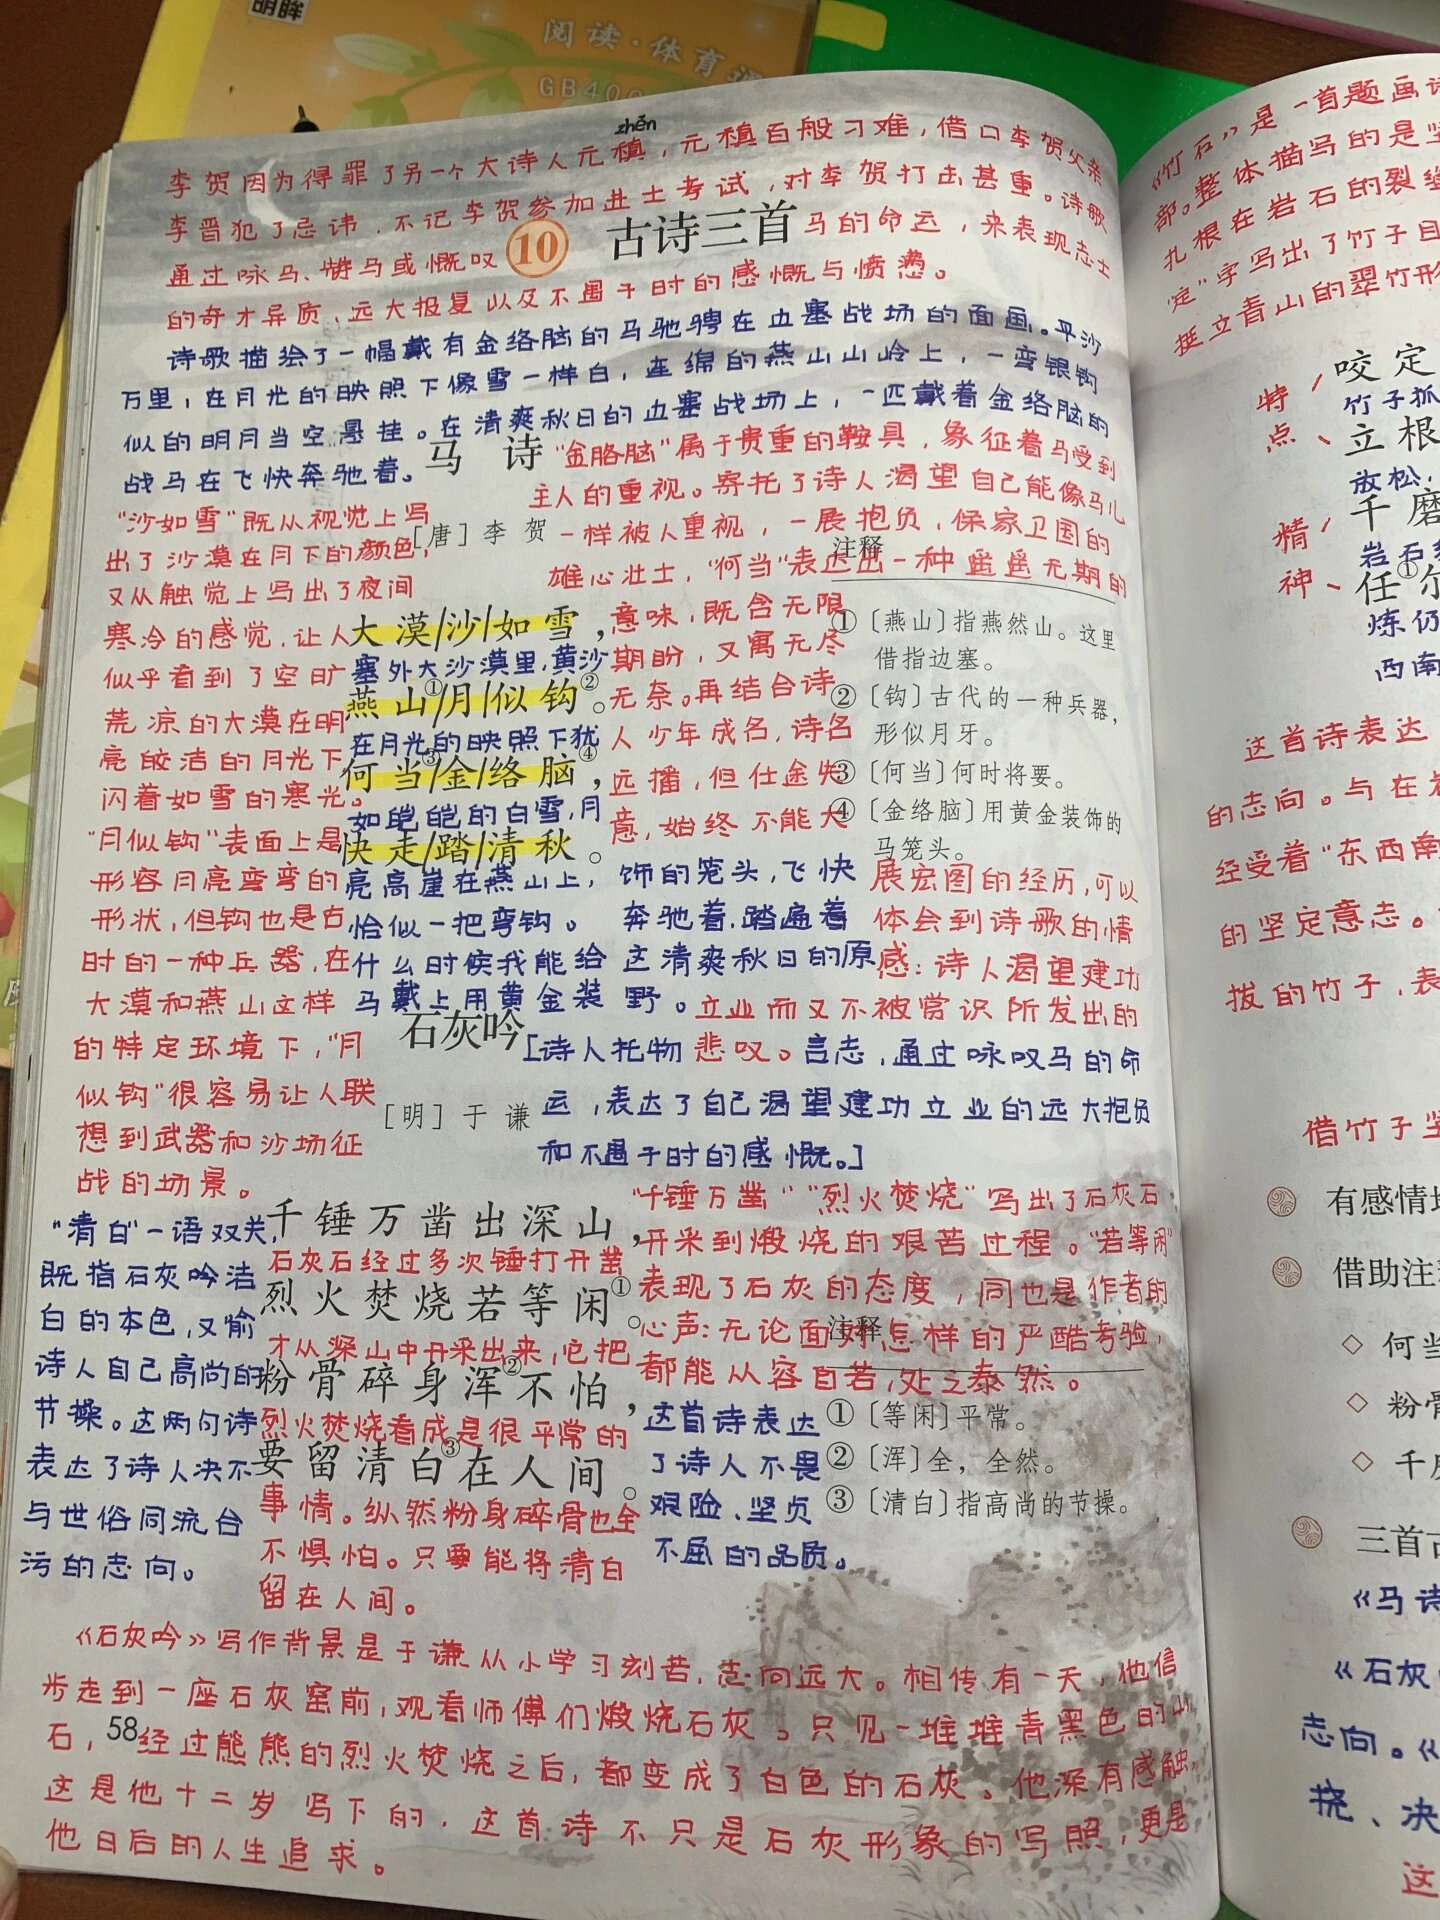 明眸
阅读·体育
GB40
zhěn
李贺因为得罪了另一个大诗人元稹,元稹百般刁难,借口李贺父亲
李晋犯了忌讳,不记李贺参加进士考试,对李贺打击甚重。诗歌
通过咏马、赞马或慨叹
10 古诗三首
马的命运,来表现志士
的奇才异质、远大报复以及不遇于时的感慨与愤懑。
诗歌描绘了一幅戴有金络脑的马驰骋在边塞战场的画面。平沙
万里,在月光的映照下像雪一样白,连绵的燕山山岭上,一弯银钩
似的明月当空悬挂。在清爽秋日的边塞战场上,一匹戴着金络脑的
战马在飞快奔驰着。
马 诗
[唐] 李 贺
“金胳脑”属于贵重的鞍具,象征着马受到
主人的重视。寄托了诗人渴望自己能像马儿
一样被人重视,一展抱负,保家卫国的
雄心壮士,“何当”表达出一种遥遥无期的
意味,既含无限
期盼,又寓无尽
无奈。再结合诗
人少年成名,诗名
远播,但仕途失
意,始终不能大
展宏图的经历,可以
体会到诗歌的情
感:诗人渴望建功
立业而又不被赏识所发出的
悲叹。
“沙如雪”既从视觉上写
出了沙漠在月下的颜色,
又从触觉上写出了夜间
寒冷的感觉,让人
似乎看到了空旷
荒凉的大漠在明
亮皎洁的月光下,
闪着如雪的寒光。
“月似钩”表面上是
形容月亮弯弯的
形状,但钩也是古
时的一种兵器,在
大漠和燕山这样
的特定环境下,“月
似钩”很容易让人联
想到武器和沙场征
战的场景。
大漠/沙/如雪,
塞外大沙漠里,黄沙
燕山①/月/似钩②。
在月光的映照下犹
何当③/金/络脑④,
如皑皑的白雪,月
快走/踏/清秋。
亮高崖在燕山上,
恰似一把弯钩。
什么时候我能给
马戴上用黄金装
饰的笼头,飞快
奔驰着,踏遍着
这清爽秋日的原
野。
注释
①〔燕山〕指燕然山。这里
借指边塞。
②〔钩〕古代的一种兵器,
形似月牙。
③〔何当〕何时将要。
④〔金络脑〕用黄金装饰的
马笼头。
[诗人托物言志,通过咏叹马的命
运,表达了自己渴望建功立业的远大抱负
和不遇于时的感慨。]
石灰吟
[明] 于 谦
千锤万凿出深山,
石灰石经过多次锤打开凿
烈火焚烧若等闲①。
才从深山中开采出来,它把
粉骨碎身浑②不怕,
烈火焚烧看成是很平常的
要留清白③在人间。
事情。纵然粉身碎骨也全
不惧怕。只要能将清白
留在人间。
“清白”一语双关,
既指石灰吟洁
白的本色,又愉
诗人自己高尚的
节操。这两句诗
表达了诗人决不
与世俗同流合
污的志向。
“千锤万凿”“烈火焚烧”写出了石灰石
开采到煅烧的艰苦过程。“若等闲”
表现了石灰的态度,同也是作者的
心声:无论面对怎样的严酷考验,
都能从容自若,处之泰然。
这首诗表达
了诗人不畏
艰险、坚贞
不屈的品质。
注释
①〔等闲〕平常。
②〔浑〕全,全然。
③〔清白〕指高尚的节操。
《石灰吟》写作背景是于谦从小学习刻苦,志向远大。相传有一天,他信
步走到一座石灰窑前,观看师傅们煅烧石灰。只见一堆堆青黑色的山
石,经过熊熊的烈火焚烧之后,都变成了白色的石灰。他深有感触,
这是他十二岁写下的,这首诗不只是石灰形象的写照,更是
他日后的人生追求。
58
《竹石》是一首题画诗
部。整体描写的是坚
扎根在岩石的裂缝
“定”字写出了竹子自
挺立青山的翠竹形
特点、
咬定
竹子抓
立根
放松,
精神、
千磨
岩石
任①尔
炼仍
西南
这首诗表达
的志向。与在岩
经受着“东西南
的坚定意志。
拔的竹子,表
借竹子坚
有感情地
借助注释
◇ 何当
◇ 粉骨
◇ 千磨
三首古
《马诗
《石灰
志向。《
挠、决
这